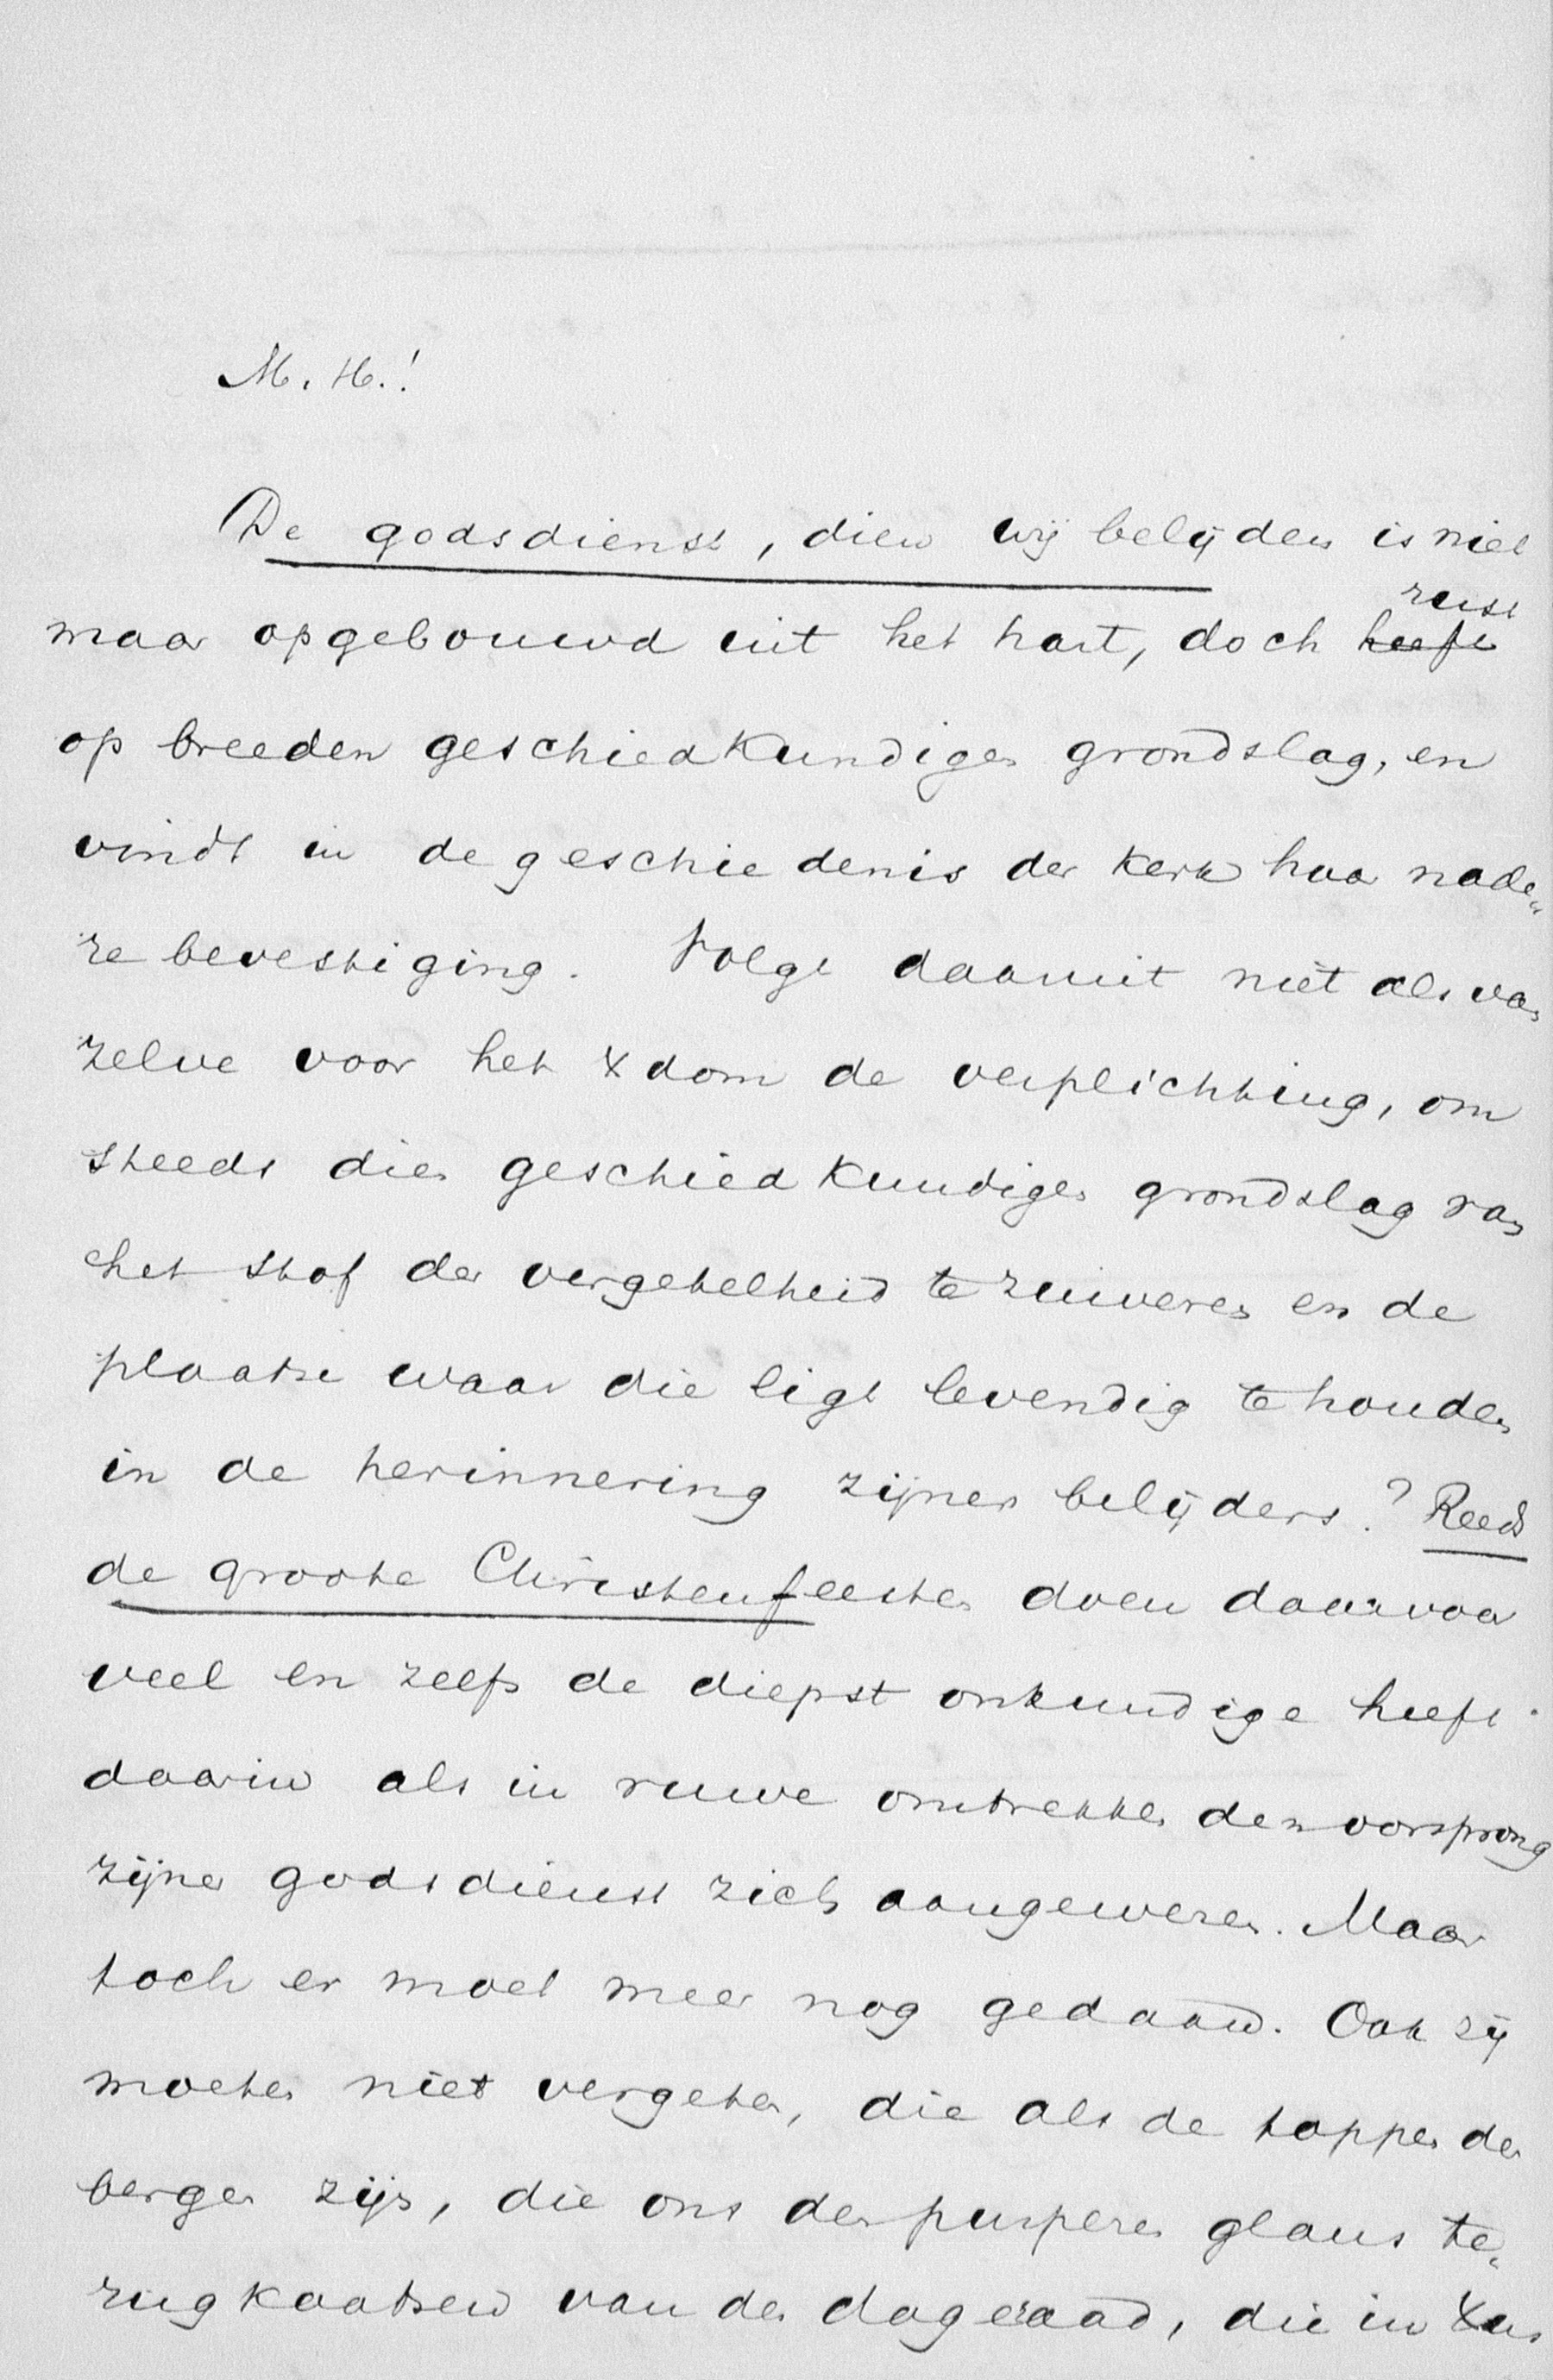 M. H.!
De godsdienst, dien wij belijden is niet
maar opgebouwd uit het hart, doch ~~heeft~~ rust
op breeden geschiedkundigen grondslag, en
vindt in de geschiedenis der kerk haar nade„
re bevestiging. Volgt daaruit niet als van
zelve voor het Xdom de verplichting, om
steeds dien geschiedkundigen grondslag van
het stof der vergetelheid te zuiveren en de
plaatse waar die ligt levendig te houden
in de herinnering zijner belijders? Reeds
de groote Christenfeesten doen daarvoor
veel en zelfs de diepst onkundige heeft
daarin als in ruwe omtrekken den oorsprong
zijner godsdienst zich aangewezen. Maar
toch er moet meer nog gedaan. Ook zij
moeten niet vergeten, die als de toppen der
bergen zijn, die ons den purperen glans te„
rugkaatsen van den dageraad, die in Xus